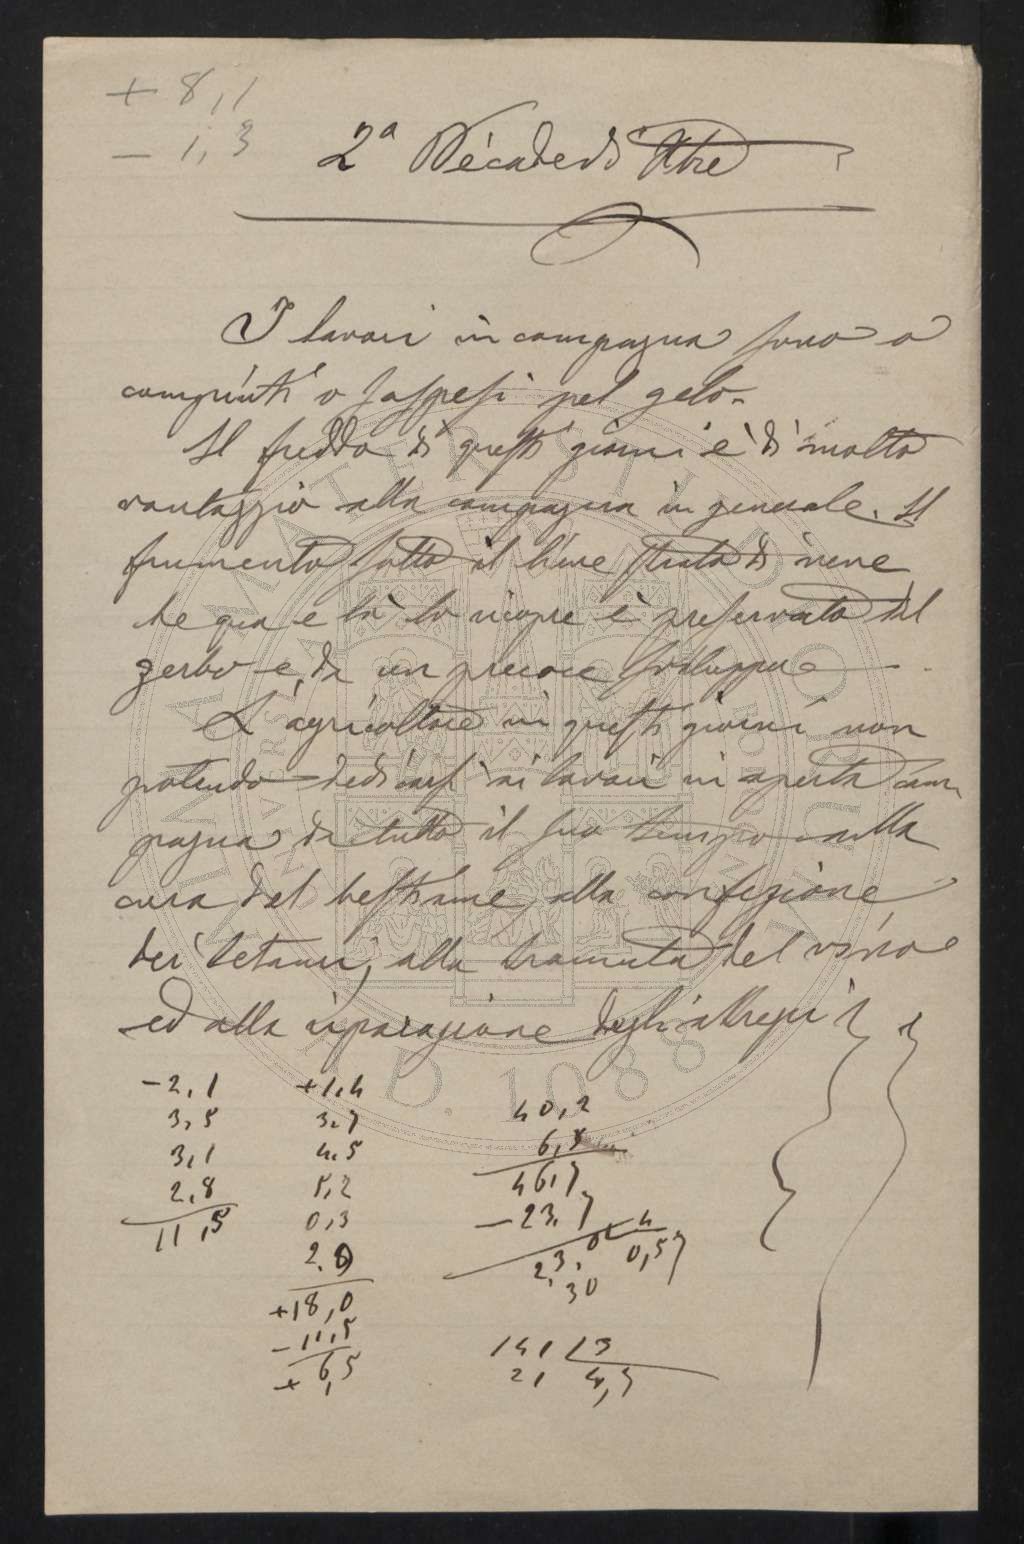 + 8,1
- 1,3
2ª Decade di Xbre
I lavori in campagna sono o
compiuti o sospesi pel gelo.
Il freddo di questi giorni è di molto
vantaggio alla campagna in generale. Il
frumento sotto il lieve strato di neve
che qua e là lo ricopre è preservato dal
gerbo e da un precoce sviluppo
L'agricoltore in questi giorni non
potendo dedicarsi ai lavori in aperta cam-
pagna dà tutto il suo tempo alla
cura del bestiame, alla confezione
dei letami, alla tramuta del vino
ed alla riparazione degli attrezzi
-2,1 +1,4
3,5 3,7 40,2
3,1 4,5 6,5
2,8 5,2 46,7
11,5 0,3 -23,7
2,9 23,0 0,57
+18,0 30
-11,5
+6,5
141 13
21 4,7
ALMA MATER STUDIORUM
A.D. 1088